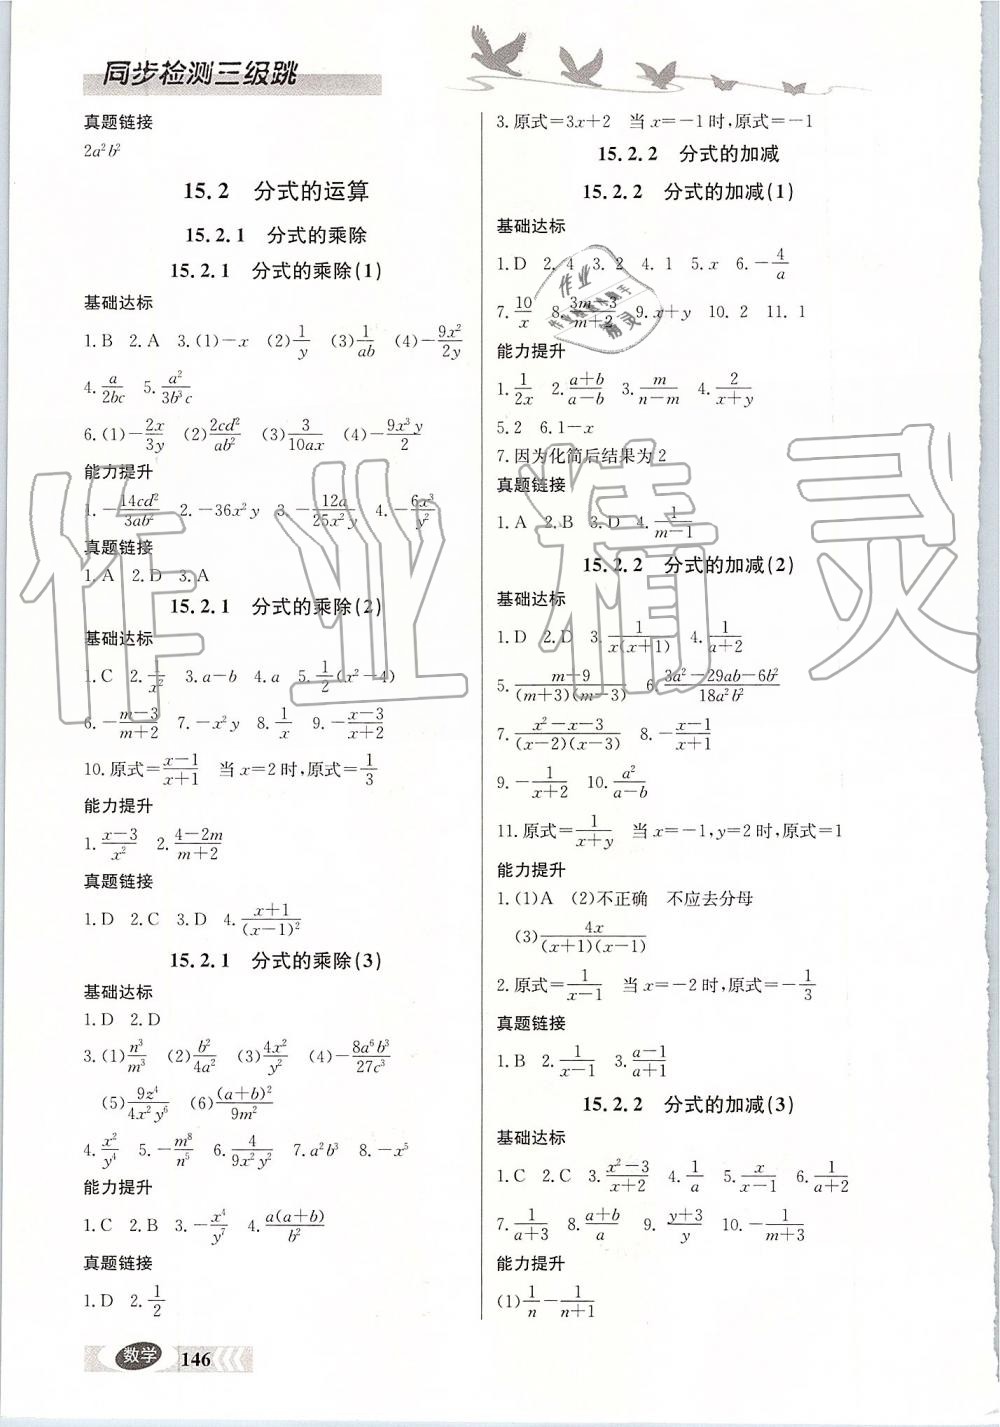 同步检测三级跳
真题链接
2a²b²
15.2 分式的运算
15.2.1 分式的乘除
15.2.1 分式的乘除(1)
基础达标
1.B 2.A 3.(1)-x (2)1/y (3)1/ab (4)-9x²/2y
4.a/2bc 5.a²/3b³c
6.(1)-2x/3y (2)2cd²/ab² (3)3/10ax (4)-9x³y/2
能力提升
1.-14cd²/3ab² 2.-36x²y 3.-12a/25x²y 4.-6x³/y²
真题链接
1.A 2.D 3.A
15.2.1 分式的乘除(2)
基础达标
1.C 2.1/x² 3.a-b 4.a 5.1/2(x²-4)
6.-(m-3)/(m+2) 7.-x²y 8.1/x 9.-(x-3)/(x+2)
10.原式=(x-1)/(x+1) 当x=2时,原式=1/3
能力提升
1.(x-3)/x² 2.(4-2m)/(m+2)
真题链接
1.D 2.C 3.D 4.(x+1)/(x-1)²
15.2.1 分式的乘除(3)
基础达标
1.D 2.D
3.(1)n³/m³ (2)b²/4a² (3)4x²/y² (4)-8a⁶b³/27c³
(5)9z⁴/4x²y⁶ (6)(a+b)²/9m²
4.x²/y⁴ 5.-m⁸/n⁵ 6.4/9x²y² 7.a²b³ 8.-x⁵
能力提升
1.C 2.B 3.-x⁴/y⁷ 4.a(a+b)/b²
真题链接
1.D 2.1/2
数学 146
3.原式=3x+2 当x=-1时,原式=-1
15.2.2 分式的加减
15.2.2 分式的加减(1)
基础达标
1.D 2.4 3.2 4.1 5.x 6.-4/a
7.10/x 8.(3m-3)/(m+2) 9.x+y 10.2 11.1
能力提升
1.1/2x 2.(a+b)/(a-b) 3.m/(n-m) 4.2/(x+y)
5.2 6.1-x
7.因为化简后结果为2
真题链接
1.A 2.B 3.D 4.1/(m-1)
15.2.2 分式的加减(2)
基础达标
1.D 2.D 3.1/x(x+1) 4.1/(a+2)
5.(m-9)/(m+3)(m-3) 6.(3a²-29ab-6b²)/18a²b²
7.(x²-x-3)/(x-2)(x-3) 8.-(x-1)/(x+1)
9.-1/(x+2) 10.a²/(a-b)
11.原式=1/(x+y) 当x=-1,y=2时,原式=1
能力提升
1.(1)A (2)不正确 不应去分母
(3)4x/(x+1)(x-1)
2.原式=1/(x-1) 当x=-2时,原式=-1/3
真题链接
1.B 2.1/(x-1) 3.(a-1)/(a+1)
15.2.2 分式的加减(3)
基础达标
1.C 2.C 3.(x²-3)/(x+2) 4.1/a 5.x/(x-1) 6.1/(a+2)
7.1/(a+3) 8.(a+b)/a 9.(y+3)/y 10.-1/(m+3)
能力提升
(1)1/n-1/(n+1)
作业精灵